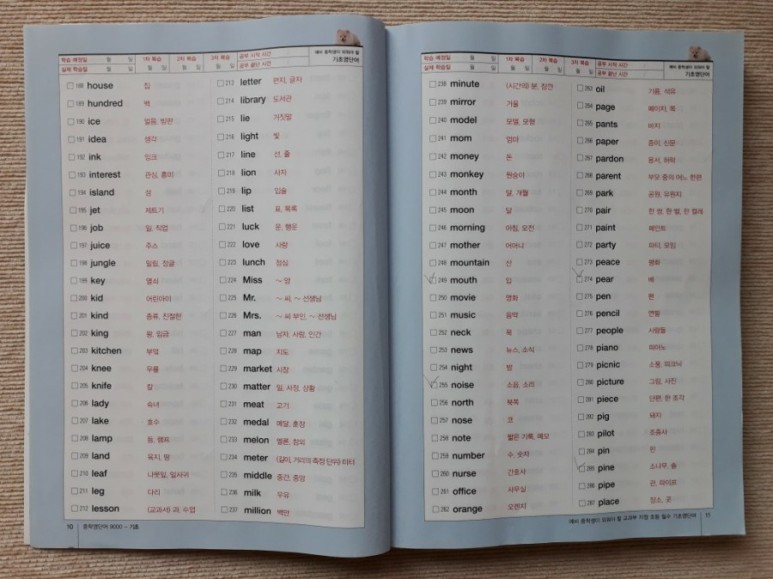 학습 예정일 월 일 1차 복습 2차 복습 3차 복습 공부 시작 시간 예비 중학생이 외워야 할
실제 학습일 월 일 월 일 월 일 월 일 공부 끝난 시간 기초영단어
188 house 집
189 hundred 백
190 ice 얼음, 빙판
191 idea 생각
192 ink 잉크
193 interest 관심, 흥미
194 island 섬
195 jet 제트기
196 job 일, 직업
197 juice 주스
198 jungle 밀림, 정글
199 key 열쇠
200 kid 어린아이
201 kind 종류, 친절한
202 king 왕, 임금
203 kitchen 부엌
204 knee 무릎
205 knife 칼
206 lady 숙녀
207 lake 호수
208 lamp 등, 램프
209 land 육지, 땅
210 leaf 나뭇잎, 잎사귀
211 leg 다리
212 lesson (교과서) 과, 수업
213 letter 편지, 글자
214 library 도서관
215 lie 거짓말
216 light 빛
217 line 선, 줄
218 lion 사자
219 lip 입술
220 list 표, 목록
221 luck 운, 행운
222 love 사랑
223 lunch 점심
224 Miss ~ 양
225 Mr. ~ 씨, ~ 선생님
226 Mrs. ~ 씨 부인, ~ 선생님
227 man 남자, 사람, 인간
228 map 지도
229 market 시장
230 matter 일, 사정, 상황
231 meat 고기
232 medal 메달, 훈장
233 melon 멜론, 참외
234 meter (길이, 거리의 측정 단위) 미터
235 middle 중간, 중앙
236 milk 우유
237 million 백만
10 중학영단어 9000 - 기초
학습 예정일 월 일 1차 복습 2차 복습 3차 복습 공부 시작 시간 예비 중학생이 외워야 할
실제 학습일 월 일 월 일 월 일 월 일 공부 끝난 시간 기초영단어
238 minute (시간의) 분, 잠깐
239 mirror 거울
240 model 모델, 모형
241 mom 엄마
242 money 돈
243 monkey 원숭이
244 month 달, 개월
245 moon 달
246 morning 아침, 오전
247 mother 어머니
248 mountain 산
249 mouth 입
250 movie 영화
251 music 음악
252 neck 목
253 news 뉴스, 소식
254 night 밤
255 noise 소음, 소리
256 north 북쪽
257 nose 코
258 note 짧은 기록, 메모
259 number 수, 숫자
260 nurse 간호사
261 office 사무실
262 orange 오렌지
263 oil 기름, 석유
264 page 페이지, 쪽
265 pants 바지
266 paper 종이, 신문
267 pardon 용서, 허락
268 parent 부모 중의 어느 한편
269 park 공원, 유원지
270 pair 한 쌍, 한 벌, 한 켤레
271 paint 페인트
272 party 파티, 모임
273 peace 평화
274 pear 배
275 pen 펜
276 pencil 연필
277 people 사람들
278 piano 피아노
279 picnic 소풍, 피크닉
280 picture 그림, 사진
281 piece 단편, 한 조각
282 pig 돼지
283 pilot 조종사
284 pin 핀
285 pine 소나무, 솔
286 pipe 관, 파이프
287 place 장소, 곳
예비 중학생이 외워야 할 교과부 지정 초등 필수 기초영단어 11